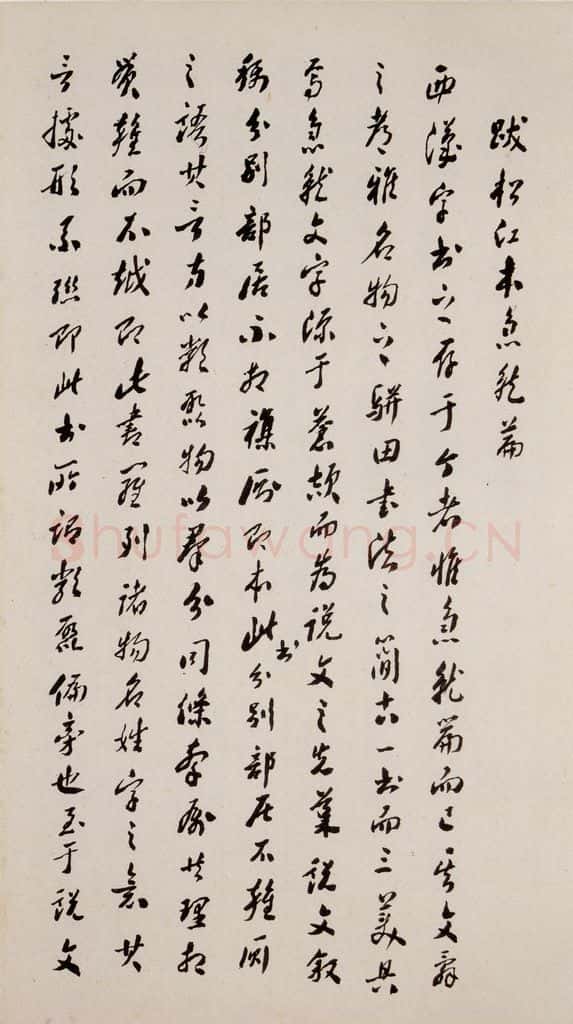 跋松江本急就篇
西漢字書之存于今者惟急就篇而已其文辭
之考雅名物之駢田書法之簡古一書而三美具
焉急就文字源于蒼頡而為說文之先藁說文敘
稱分別部居不相襍廁即本此書分別部居不雜廁
之語其言方以類聚物以羣分同條牽屬共理相
貫雜而不越即此書羅列諸物名姓字之意其
言據形系聯即此書所謂類聚偏旁也至于說文
Shufawang.CN